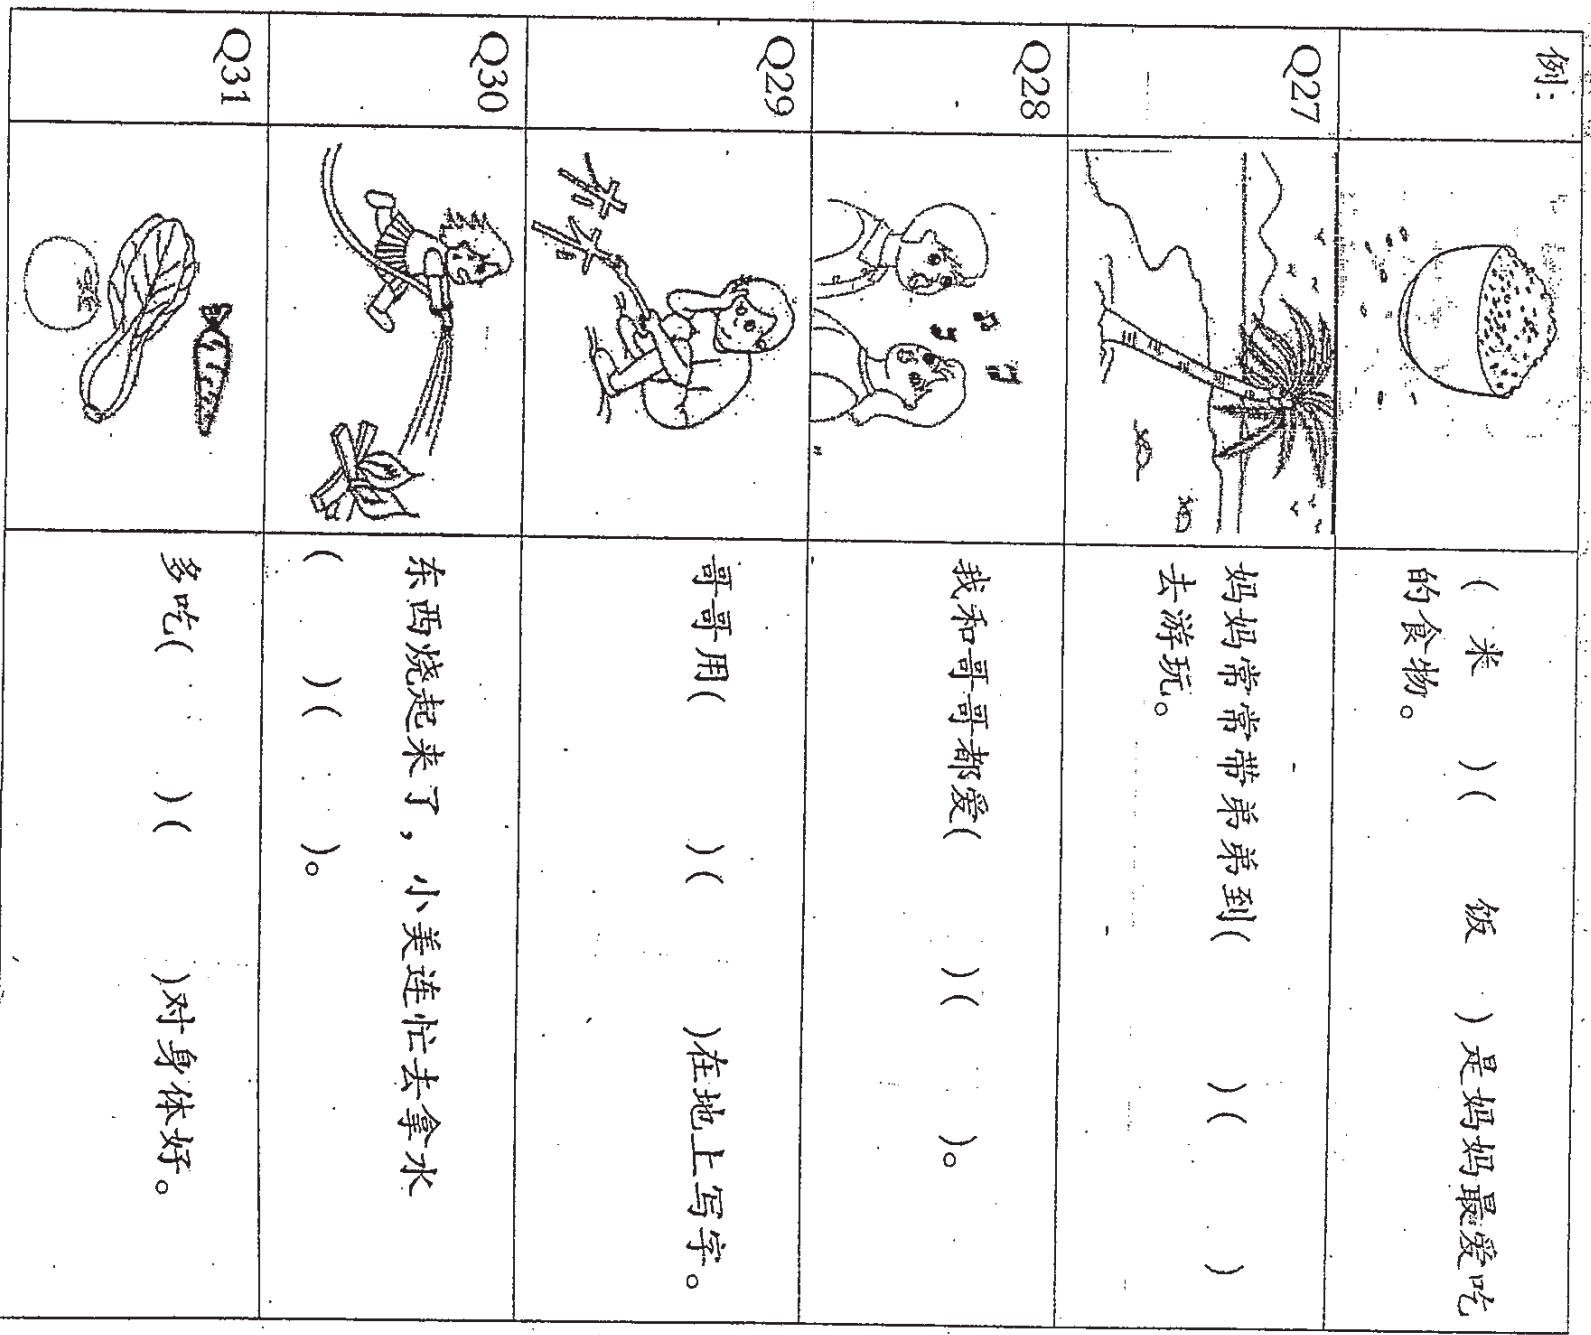 例：
( 米 )( 饭 )是妈妈最爱吃
的食物。
Q27
妈妈常常带弟弟到( )( )
去游玩。
Q28
我和哥哥都爱( )( )。
Q29
哥哥用( )( )在地上写字。
Q30
东西烧起来了，小美连忙去拿水
( )( )。
Q31
多吃( )( )对身体好。